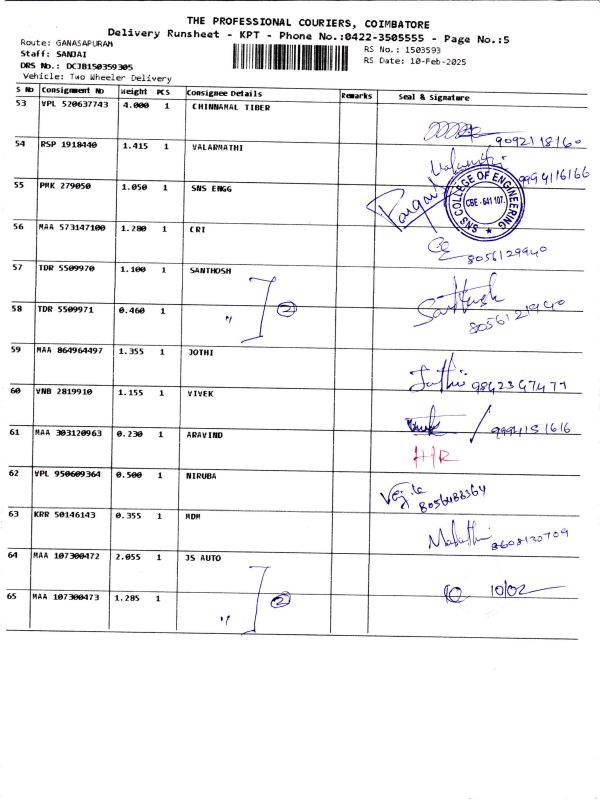 THE PROFESSIONAL COURIERS, COIMBATORE
Delivery Runsheet - KPT - Phone No.:0422-3505555 - Page No.:5
Route: GANASAPURAM
RS No.: 1503593
Staff: SANJAI
RS Date: 10-Feb-2025
DRS No.: DCJB150359305
Vehicle: Two Wheeler Delivery
S No Consignment No Weight PCS Consignee Details Remarks Seal & Signature
53 VPL 520637743 4.000 1 CHINNAMAL TIBER
9092118160
54 RSP 1918440 1.415 1 VALARMATHI
9994116166
55 PMK 279050 1.050 1 SNS ENGG
SNS COLLEGE OF ENGINEERING
CBE - 641 107.
56 MAA 573147100 1.280 1 CRI
8056129940
57 TDR 5509970 1.100 1 SANTHOSH
Santhosh
8056121940
58 TDR 5509971 0.460 1 " 2
59 MAA 864964497 1.355 1 JOTHI
Jothi 9842347477
60 VNB 2819910 1.155 1 VIVEK
9994151616
61 MAA 303120963 0.230 1 ARAVIND
H/R
62 VPL 950609364 0.500 1 NIRUBA
8056488364
63 KRR 50146143 0.355 1 MDM
8608130709
64 MAA 107300472 2.055 1 JS AUTO
10/02
65 MAA 107300473 1.285 1 " 2